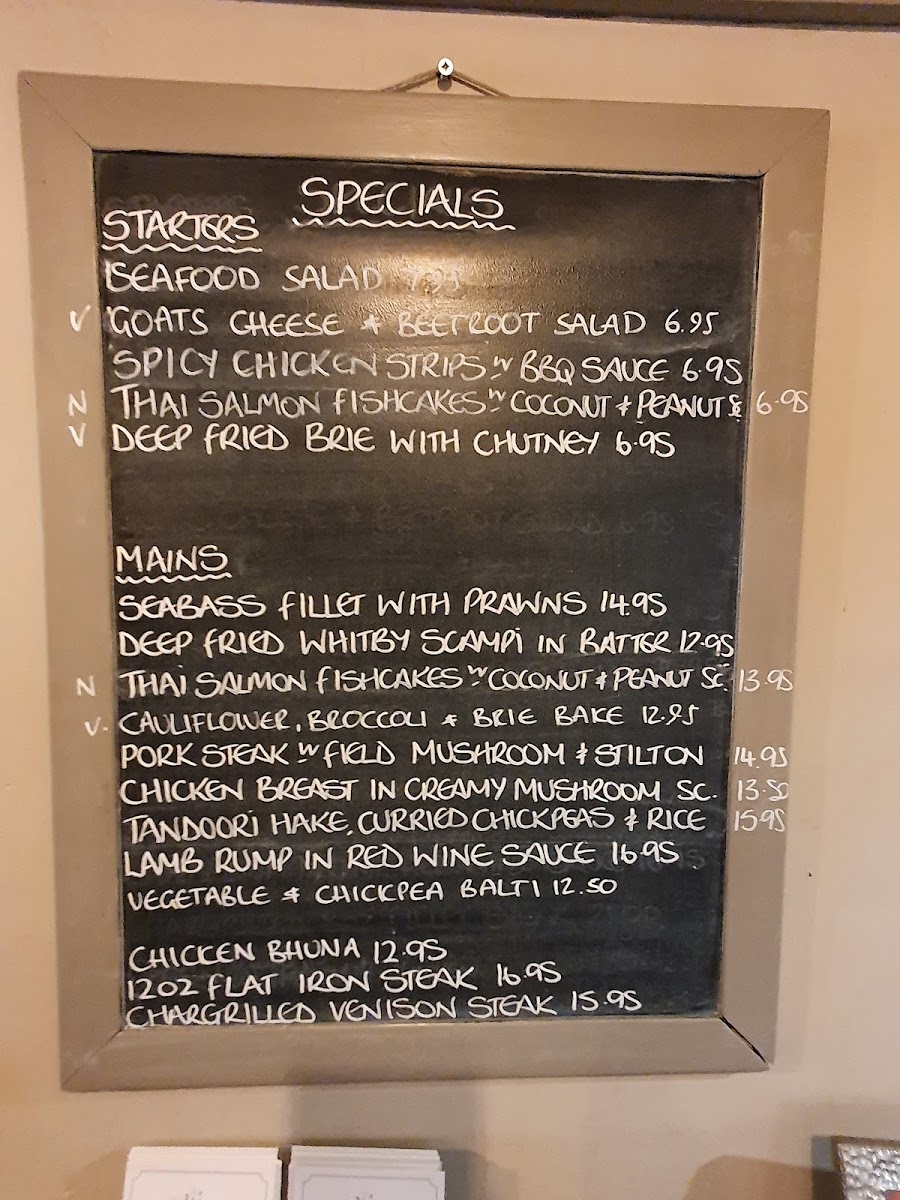 SPECIALS
STARTERS
SEAFOOD SALAD 7.95
V GOATS CHEESE & BEETROOT SALAD 6.95
SPICY CHICKEN STRIPS W BBQ SAUCE 6.95
N THAI SALMON FISHCAKES W COCONUT & PEANUT SC 6.95
V DEEP FRIED BRIE WITH CHUTNEY 6.95
MAINS
SEABASS FILLET WITH PRAWNS 14.95
DEEP FRIED WHITBY SCAMPI IN BATTER 12.95
N THAI SALMON FISHCAKES W COCONUT & PEANUT SC. 13.95
V. CAULIFLOWER, BROCCOLI & BRIE BAKE 12.95
PORK STEAK W FIELD MUSHROOM & STILTON 14.95
CHICKEN BREAST IN CREAMY MUSHROOM SC. 13.50
TANDOORI HAKE, CURRIED CHICKPEAS & RICE 15.95
LAMB RUMP IN RED WINE SAUCE 16.95
VEGETABLE & CHICKPEA BALTI 12.50
CHICKEN BHUNA 12.95
12OZ FLAT IRON STEAK 16.95
CHARGRILLED VENISON STEAK 15.95